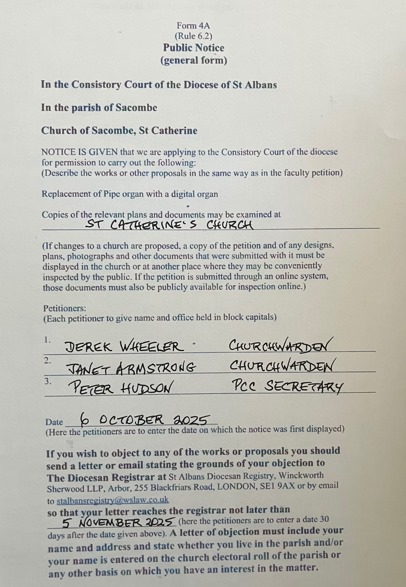 Form 4A
(Rule 6.2)
Public Notice
(general form)
In the Consistory Court of the Diocese of St Albans
In the parish of Sacombe
Church of Sacombe, St Catherine
NOTICE IS GIVEN that we are applying to the Consistory Court of the diocese
for permission to carry out the following:
(Describe the works or other proposals in the same way as in the faculty petition)
Replacement of Pipe organ with a digital organ
Copies of the relevant plans and documents may be examined at
ST CATHERINE'S CHURCH
(If changes to a church are proposed, a copy of the petition and of any designs,
plans, photographs and other documents that were submitted with it must be
displayed in the church or at another place where they may be conveniently
inspected by the public. If the petition is submitted through an online system,
those documents must also be publicly available for inspection online.)
Petitioners:
(Each petitioner to give name and office held in block capitals)
1. DEREK WHEELER CHURCHWARDEN
2. JANET ARMSTRONG CHURCHWARDEN
3. PETER HUDSON PCC SECRETARY
Date 6 OCTOBER 2025
(Here the petitioners are to enter the date on which the notice was first displayed)
If you wish to object to any of the works or proposals you should
send a letter or email stating the grounds of your objection to
The Diocesan Registrar at St Albans Diocesan Registry, Winckworth
Sherwood LLP, Arbor, 255 Blackfriars Road, LONDON, SE1 9AX or by email
to stalbansregistry@wslaw.co.uk
so that your letter reaches the registrar not later than
5 NOVEMBER 2025 (here the petitioners are to enter a date 30
days after the date given above). A letter of objection must include your
name and address and state whether you live in the parish and/or
your name is entered on the church electoral roll of the parish or
any other basis on which you have an interest in the matter.